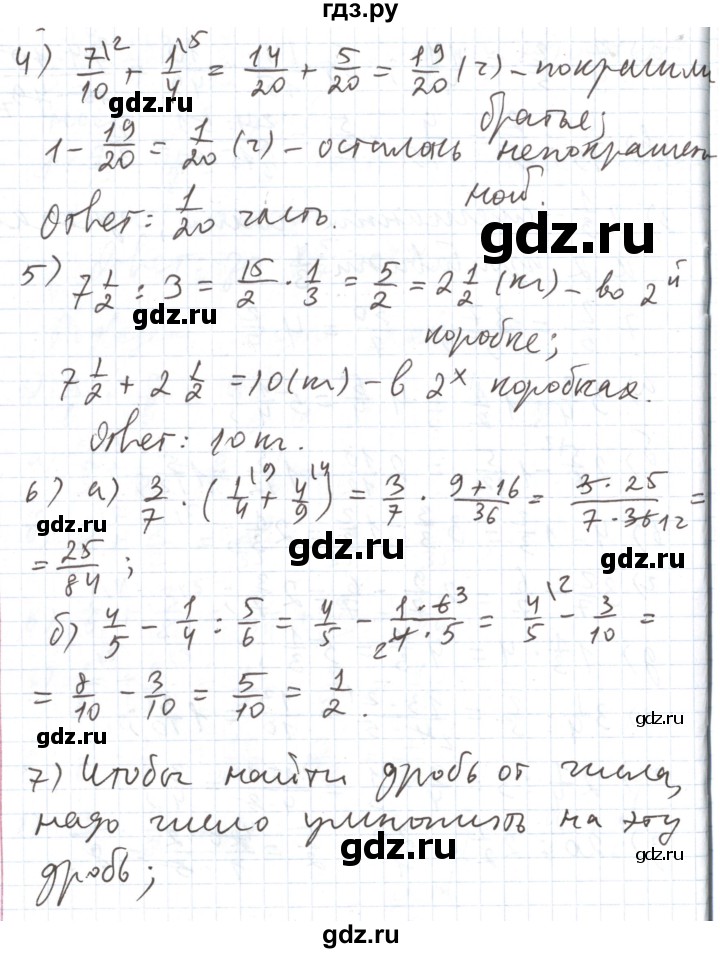 гдз.ру
4) 7/10\2 + 1/4\5 = 14/20 + 5/20 = 19/20 (ч) – покрасили
gdz.ru
братье;
1 – 19/20 = 1/20 (ч) – осталась непокрашен
ной.
Ответ: 1/20 часть.
gdz.ru
5) 7 1/2 : 3 = 15/2 · 1/3 = 5/2 = 2 1/2 (кг) – во 2й
gdz.ru
коробке;
7 1/2 + 2 1/2 = 10 (кг) – в 2х коробках.
Ответ: 10 кг.
6) а) 3/7 · (1/4\9 + 4/9\4) = 3/7 · (9+16)/36 = (3 · 25)/(7 · 36 12) =
gdz.ru
gdz.ru
gdz.ru
= 25/84 ;
б) 4/5 – 1/4 : 5/6 = 4/5 – (1 · 6 3)/(2 4 · 5) = 4/5\2 – 3/10 =
= 8/10 – 3/10 = 5/10 = 1/2 .
gdz.ru
gdz.ru
7) Чтобы найти дробь от числа,
надо число умножить на эту
gdz.ru
gdz.ru
дробь;
gdz.ru